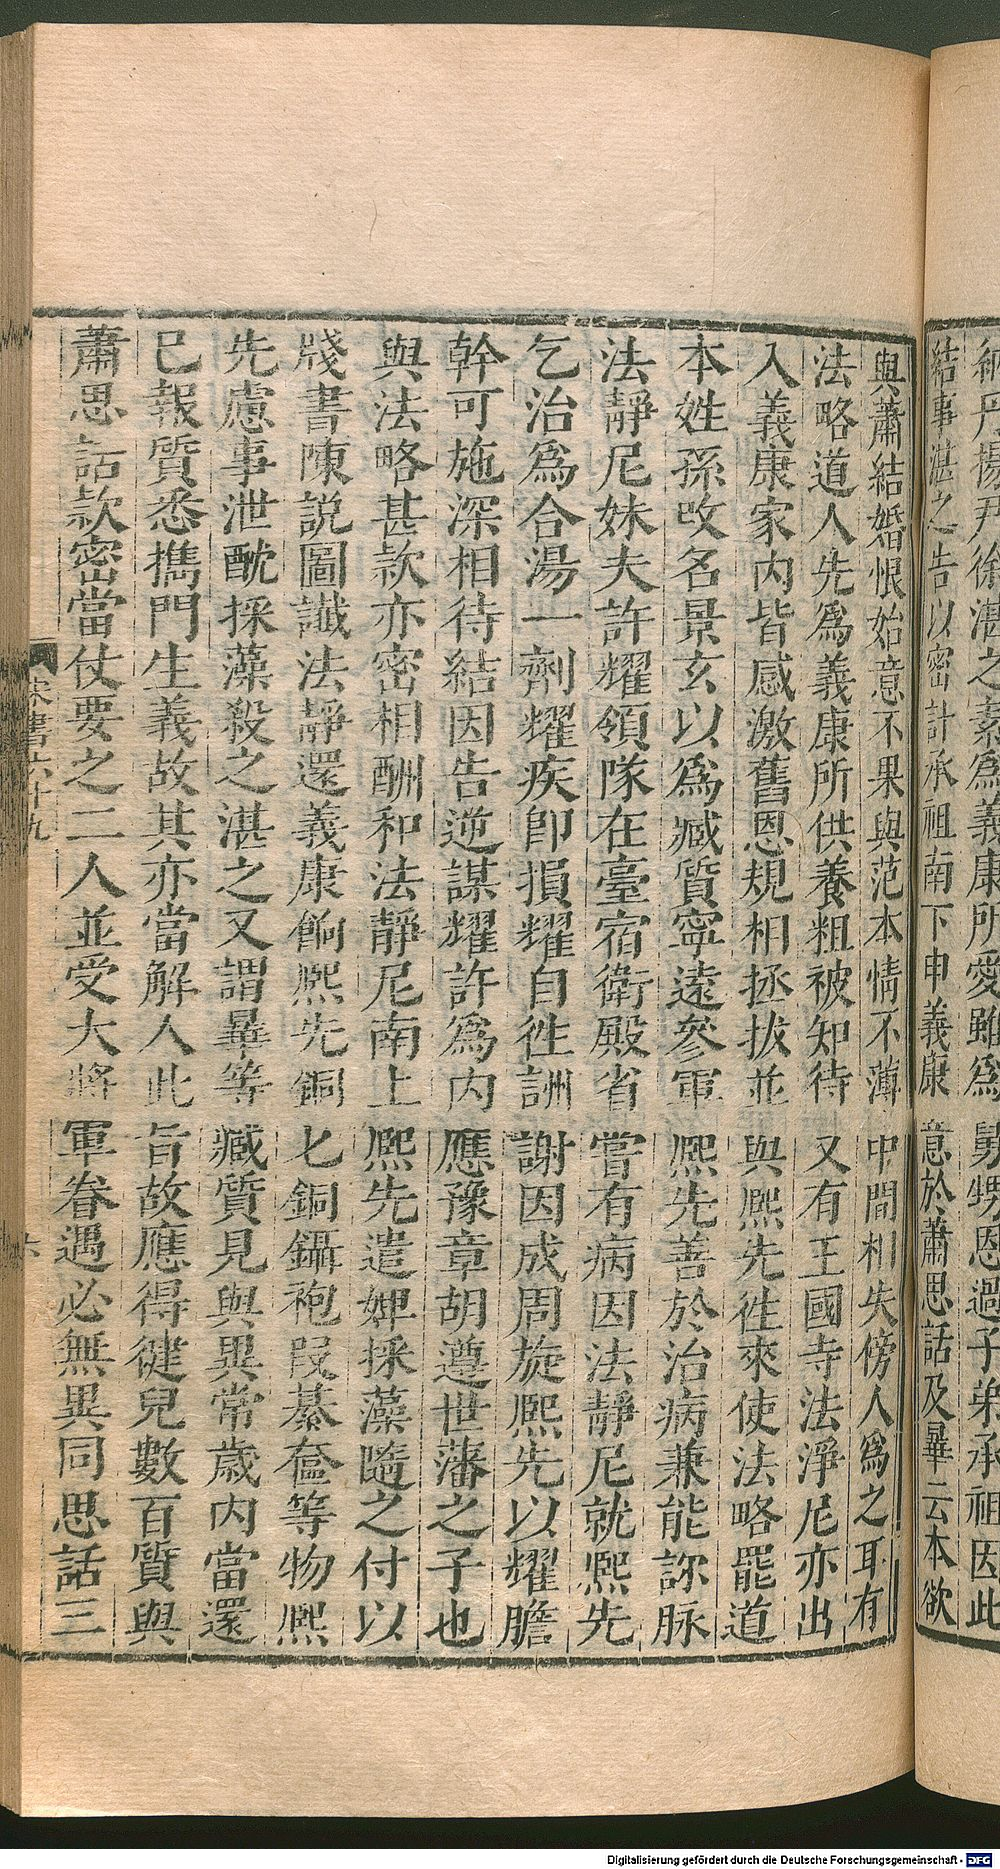 納丹楊尹徐湛之素爲義康所愛雖爲舅甥恩過子弟承祖因此
結事湛之告以密計承祖南下申義康意於蕭思話及曄云本欲
與蕭結婚恨始意不果與范本情不薄中間相失傍人爲之耳有
法略道人先爲義康所供養粗被知待又有王國寺法淨尼亦出
入義康家內皆感激舊恩規相拯拔並與熙先徃來使法略罷道
本姓孫改名景玄以爲臧質寧遠參軍熙先善於治病兼能診脉
法靜尼妹夫許耀領隊在臺宿衛殿省嘗有病因法靜尼就熙先
乞治爲合湯一劑耀疾卽損耀自徃詶謝因成周旋熙先以耀膽
幹可施深相待結因告逆謀耀許爲內應豫章胡遵世藩之子也
與法略甚款亦密相酬和法靜尼南上熙先遣婢採藻隨之付以
牋書陳說圖讖法靜還義康餉熙先銅匕銅鑷袍段棊奩等物熙
先慮事泄酖採藻殺之湛之又謂曄等臧質見與異常歲內當還
已報質悉攜門生義故其亦當解人此旨故應得徤兒數百質與
蕭思話款密當仗要之二人並受大將軍眷遇必無異同思話三
宋書六十九
六
Digitalisierung gefördert durch die Deutsche Forschungsgemeinschaft - DFG